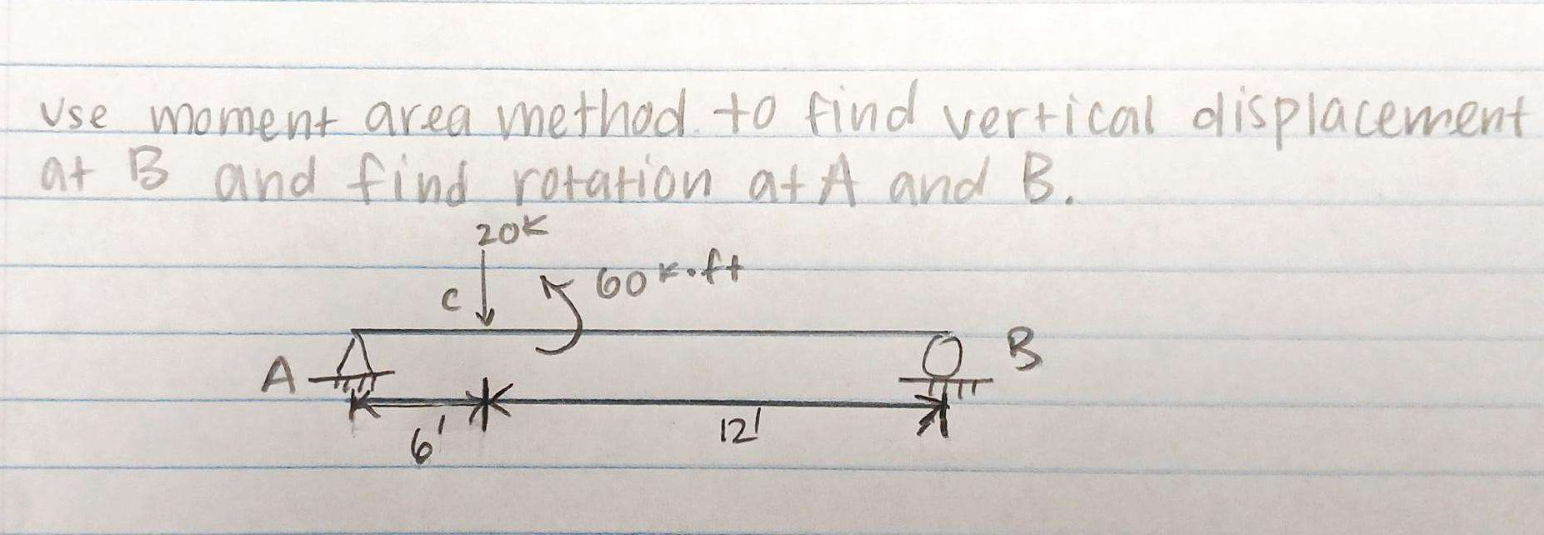 use moment area method to find vertical displacement
at B and find rotation at A and B.
20K
C
60 K·ft
A
B
6'
12'